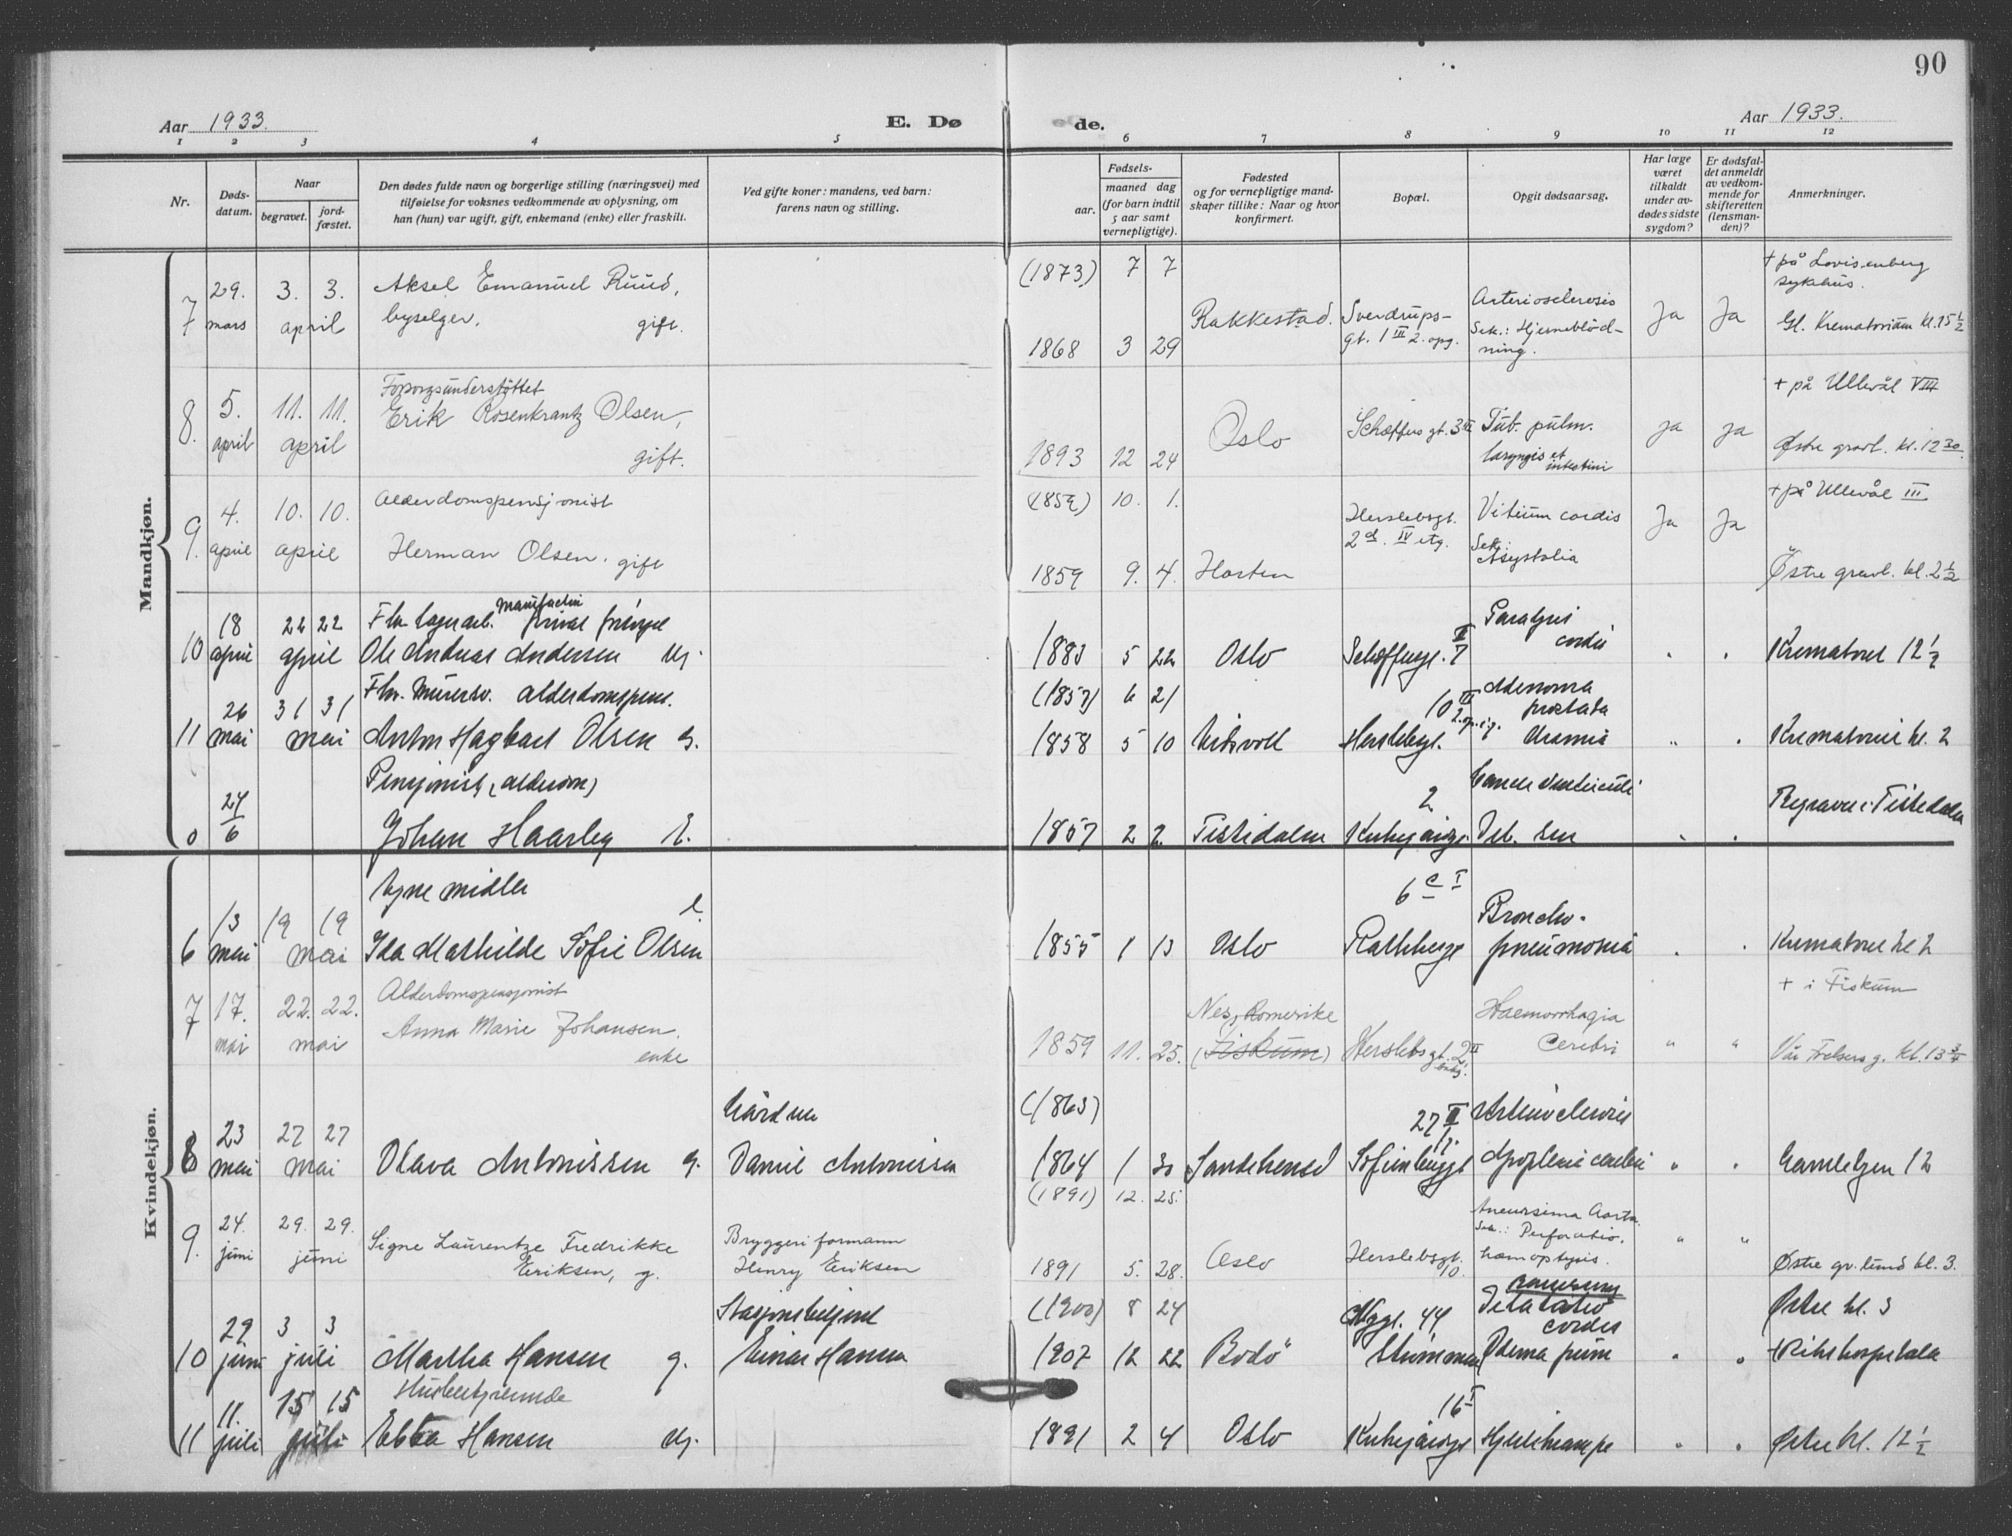 90
Aar 1933.
E. Dø de.
Aar 1933.
1 2 3 4 5 6 7 8 9 10 11 12
Nr.
Døds-
datum.
Naar
begravet.
jord-
fæstet.
Den dødes fulde navn og borgerlige stilling (næringsvei) med
tilføielse for voksnes vedkommende av oplysning, om
han (hun) var ugift, gift, enkemand (enke) eller fraskilt.
Ved gifte koner: mandens, ved barn:
farens navn og stilling.
Fødsels-
aar.
maaned dag
(for barn indtil
5 aar samt
vernepligtige).
Fødested
og for vernepligtige mand-
skaper tillike: Naar og hvor
konfirmert.
Bopæl.
Opgit dødsaarsag.
Har læge
været
tilkaldt
under av-
dødes sidste
sygdom?
Er dødsfal-
det anmeldt
av vedkom-
mende for
skifteretten
(lensman-
den)?
Anmerkninger.
Mandkjøn.
7 29. mars 3. 3. april
Aksel Emanuel Ruud,
byselger, gift.
(1873) 7 7
1868 3 29
Rakkestad.
Sverdrups-
gt. 1 III 2. opg.
Arteriosclerosis
Sek.: Hjerneblød-
ning.
Ja Ja
+ på Lovisenberg
sykehus.
Gl. Krematorium kl. 15 1/2
8. 5. april 11. 11. april
Forsorgsunderstøttet
Erik Rosenkrantz Olsen,
gift.
1893 12 24
Oslo
Schæffers gt. 3
Tub. pulm.
laryngis et
intestini
ja ja
+ på Ullevål VIII
Østre gravl. kl. 12 30.
9. 4. april 10. 10. april
Alderdomspensjonist
Herman Olsen. gift
(1859) 10. 1.
1859 9. 4.
Horten
Herslebsgt.
2 d. IV etg.
Vitium cordis
Sek.:
Asystolia
Ja Ja
+ på Ullevål III
Østre gravl. kl. 2 1/2
10 18 april 22 22 april
Fhv. lagerarb.
Ole Andreas Andersen ug.
1883 5 22
Oslo
Schæffersgt. 7
Paralysis
cordis
" "
Krematoriet 12 1/2
11 26 mai 31 31 mai
Fhv. Murersv. alderdomspens.
Anton Hagbart Olsen g.
(1857) 6 21
1858 5 10
Eidsvoll
10 III
Herslebsgt.
Adenoma
prostata
Uramia
" "
Krematoriet kl. 2
0 24/6
Pensjonist, (alderdom)
Johan Haarby E.
1857 2 2.
Tistedalen
2
Cancer ventriculi
Deb. sen
" "
Begravet i Tistedalen
Kvindekjøn.
6 13 mai 19 19 mai
Egne midler
e.
Ida Mathilde Sofie Olsen
1855 1 13
Oslo
6 c I
Rathkesgt
Broncho-
pneumonia
" "
Krematoriet kl 2
7 17. mai 22. 22. mai
Alderdomspensjonist
Anna Marie Johansen.
enke
1859 11. 25.
Nes, Romerike
(Fiskum)
Herslebsgt. 2 II
Haemorrhagia
Cerebri
" "
+ i Fiskum
Vår Frelsers g. kl. 13 3/4
8 23 mai 27 27 mai
Olava Antonissen g.
Gårdeier
Daniel Antonissen
(1863)
1864 1 30
Sandeherred
27 II
Sofienberggt
Arteriosclerosis
Apoplexia cerebri
" "
Gamlebyen 12
9. 24. juni 29. 29. juni
Signe Laurentze Fredrikke
Eriksen, g.
Bryggeriformann
Henry Eriksen
(1891) 12. 25.
1891 5. 28.
Oslo
Herslebsgt.
10.
Aneurisima Aorta.
Sek.: Perforatio.
hæmoptysis.
" "
Østre gr. lund kl. 3.
10 29 juni 3 3 juli
Martha Hansen g.
Stasjonsbetjent
Einar Hansen
(1900) 8 24
1907 12 22
Bodø
44
Strømmen
Dilatatio
cordis
Ødema pulm
" "
Østre kl. 3
+ Rikshospitalet
11 11. juli 15 15 juli
Husbestyrerinde
Ebba Hansen ug.
1891 2 4
Oslo
16 I
Hjertekrampe
" "
Østre kl. 12 1/2